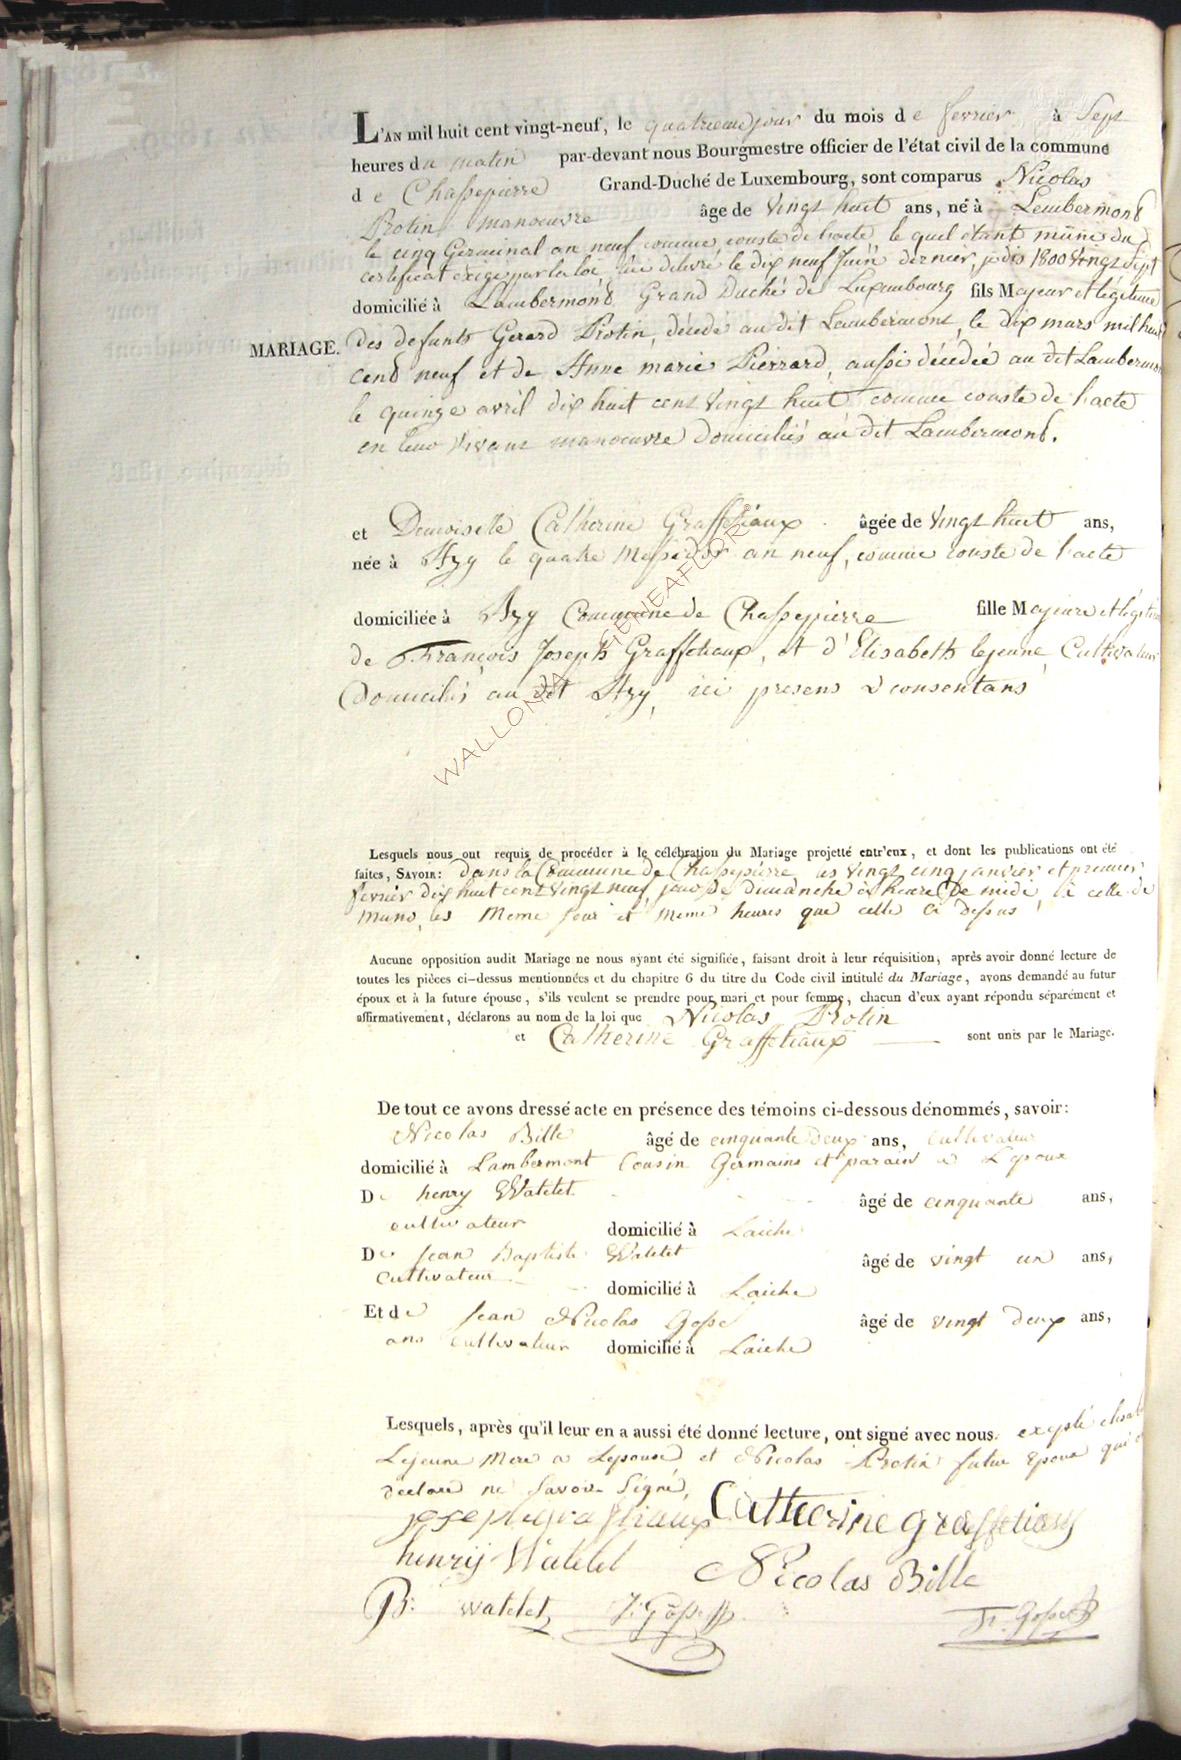 L'AN mil huit cent vingt-neuf, le quatrieme jour du mois de fevrier à Sept
heures du matin par-devant nous Bourgmestre officier de l'état civil de la commune
de Chassepierre Grand-Duché de Luxembourg, sont comparus Nicolas
Protin manoeuvre âge de vingt huit ans, né à Lambermont
le cinq Germinal an neuf comme conste de l'acte, le quel etant muni du
certificat exigé par la loi lui delivré le dix neuf Juin dernier, je dis 1800 vingt sept
domicilié à Lambermont Grand Duché de Luxembourg fils Majeur et légitime
MARIAGE. Des defunts Gerard Protin, décedé au dit Lambermont, le dix mars mil huit
cent neuf et de Anne marie Pierrard, aussi décédée au dit Lambermont
le quinze avril dix huit cent vingt huit comme conste de l'acte
en leur vivant manoeuvre domiciliés au dit Lambermont.
et Demoiselle Catherine Graffetiaux âgée de vingt huit ans,
née à Azy le quatre Messidor an neuf, comme conste de l'acte
domiciliée à Azy Commune de Chassepierre fille Majeure et légitime
de François Joseph Graffetiaux, et d'Elisabeth lejeune Cultivateurs
Domiciliés au dit Azy, ici presens & consentans
WALLONIA GENEAFLOR
Lesquels nous ont requis de procéder à le célébration du Mariage projetté entr'eux, et dont les publications ont été
faites, SAVOIR: dans la Commune de Chassepierre, les vingt cinq janvier et premier
fevrier dix huit cent vingt neuf, jour de dimanche à heure de midi, à celle de
Muno, les Meme jour et meme heures que celle ci dessus
Aucune opposition audit Mariage ne nous ayant été signifiée, faisant droit à leur réquisition, après avoir donné lecture de
toutes les pièces ci-dessus mentionnées et du chapitre 6 du titre du Code civil intitulé du Mariage, avons demandé au futur
époux et à la future épouse, s'ils veulent se prendre pour mari et pour femme, chacun d'eux ayant répondu séparément et
affirmativement, déclarons au nom de la loi que Nicolas Protin
et Catherine Graffetiaux sont unis par le Mariage.
De tout ce avons dressé acte en présence des témoins ci-dessous dénommés, savoir:
Nicolas Bille âgé de cinquante deux ans, cultivateur
domicilié à Lambermont Cousin Germains et parain a L'epoux
De henry Watelet âgé de cinquante ans,
cultivateur domicilié à Laiche
De Jean Baptiste Watelet âgé de vingt un ans,
Cultivateur domicilié à Laiche
Et de Jean Nicolas Gosset âgé de vingt deux ans,
ans cultivateur domicilié à Laiche
Lesquels, après qu'il leur en a aussi été donné lecture, ont signé avec nous. exepté elisab
Lejeune Mere a Lepouse et Nicolas Protin futur Epoux qui
declare ne Savoir Signé,
joseph graffetiaux Catherine graffetiaux
henrij Watelet Nicolas Bille
B: watelet J: Gosset Gosset